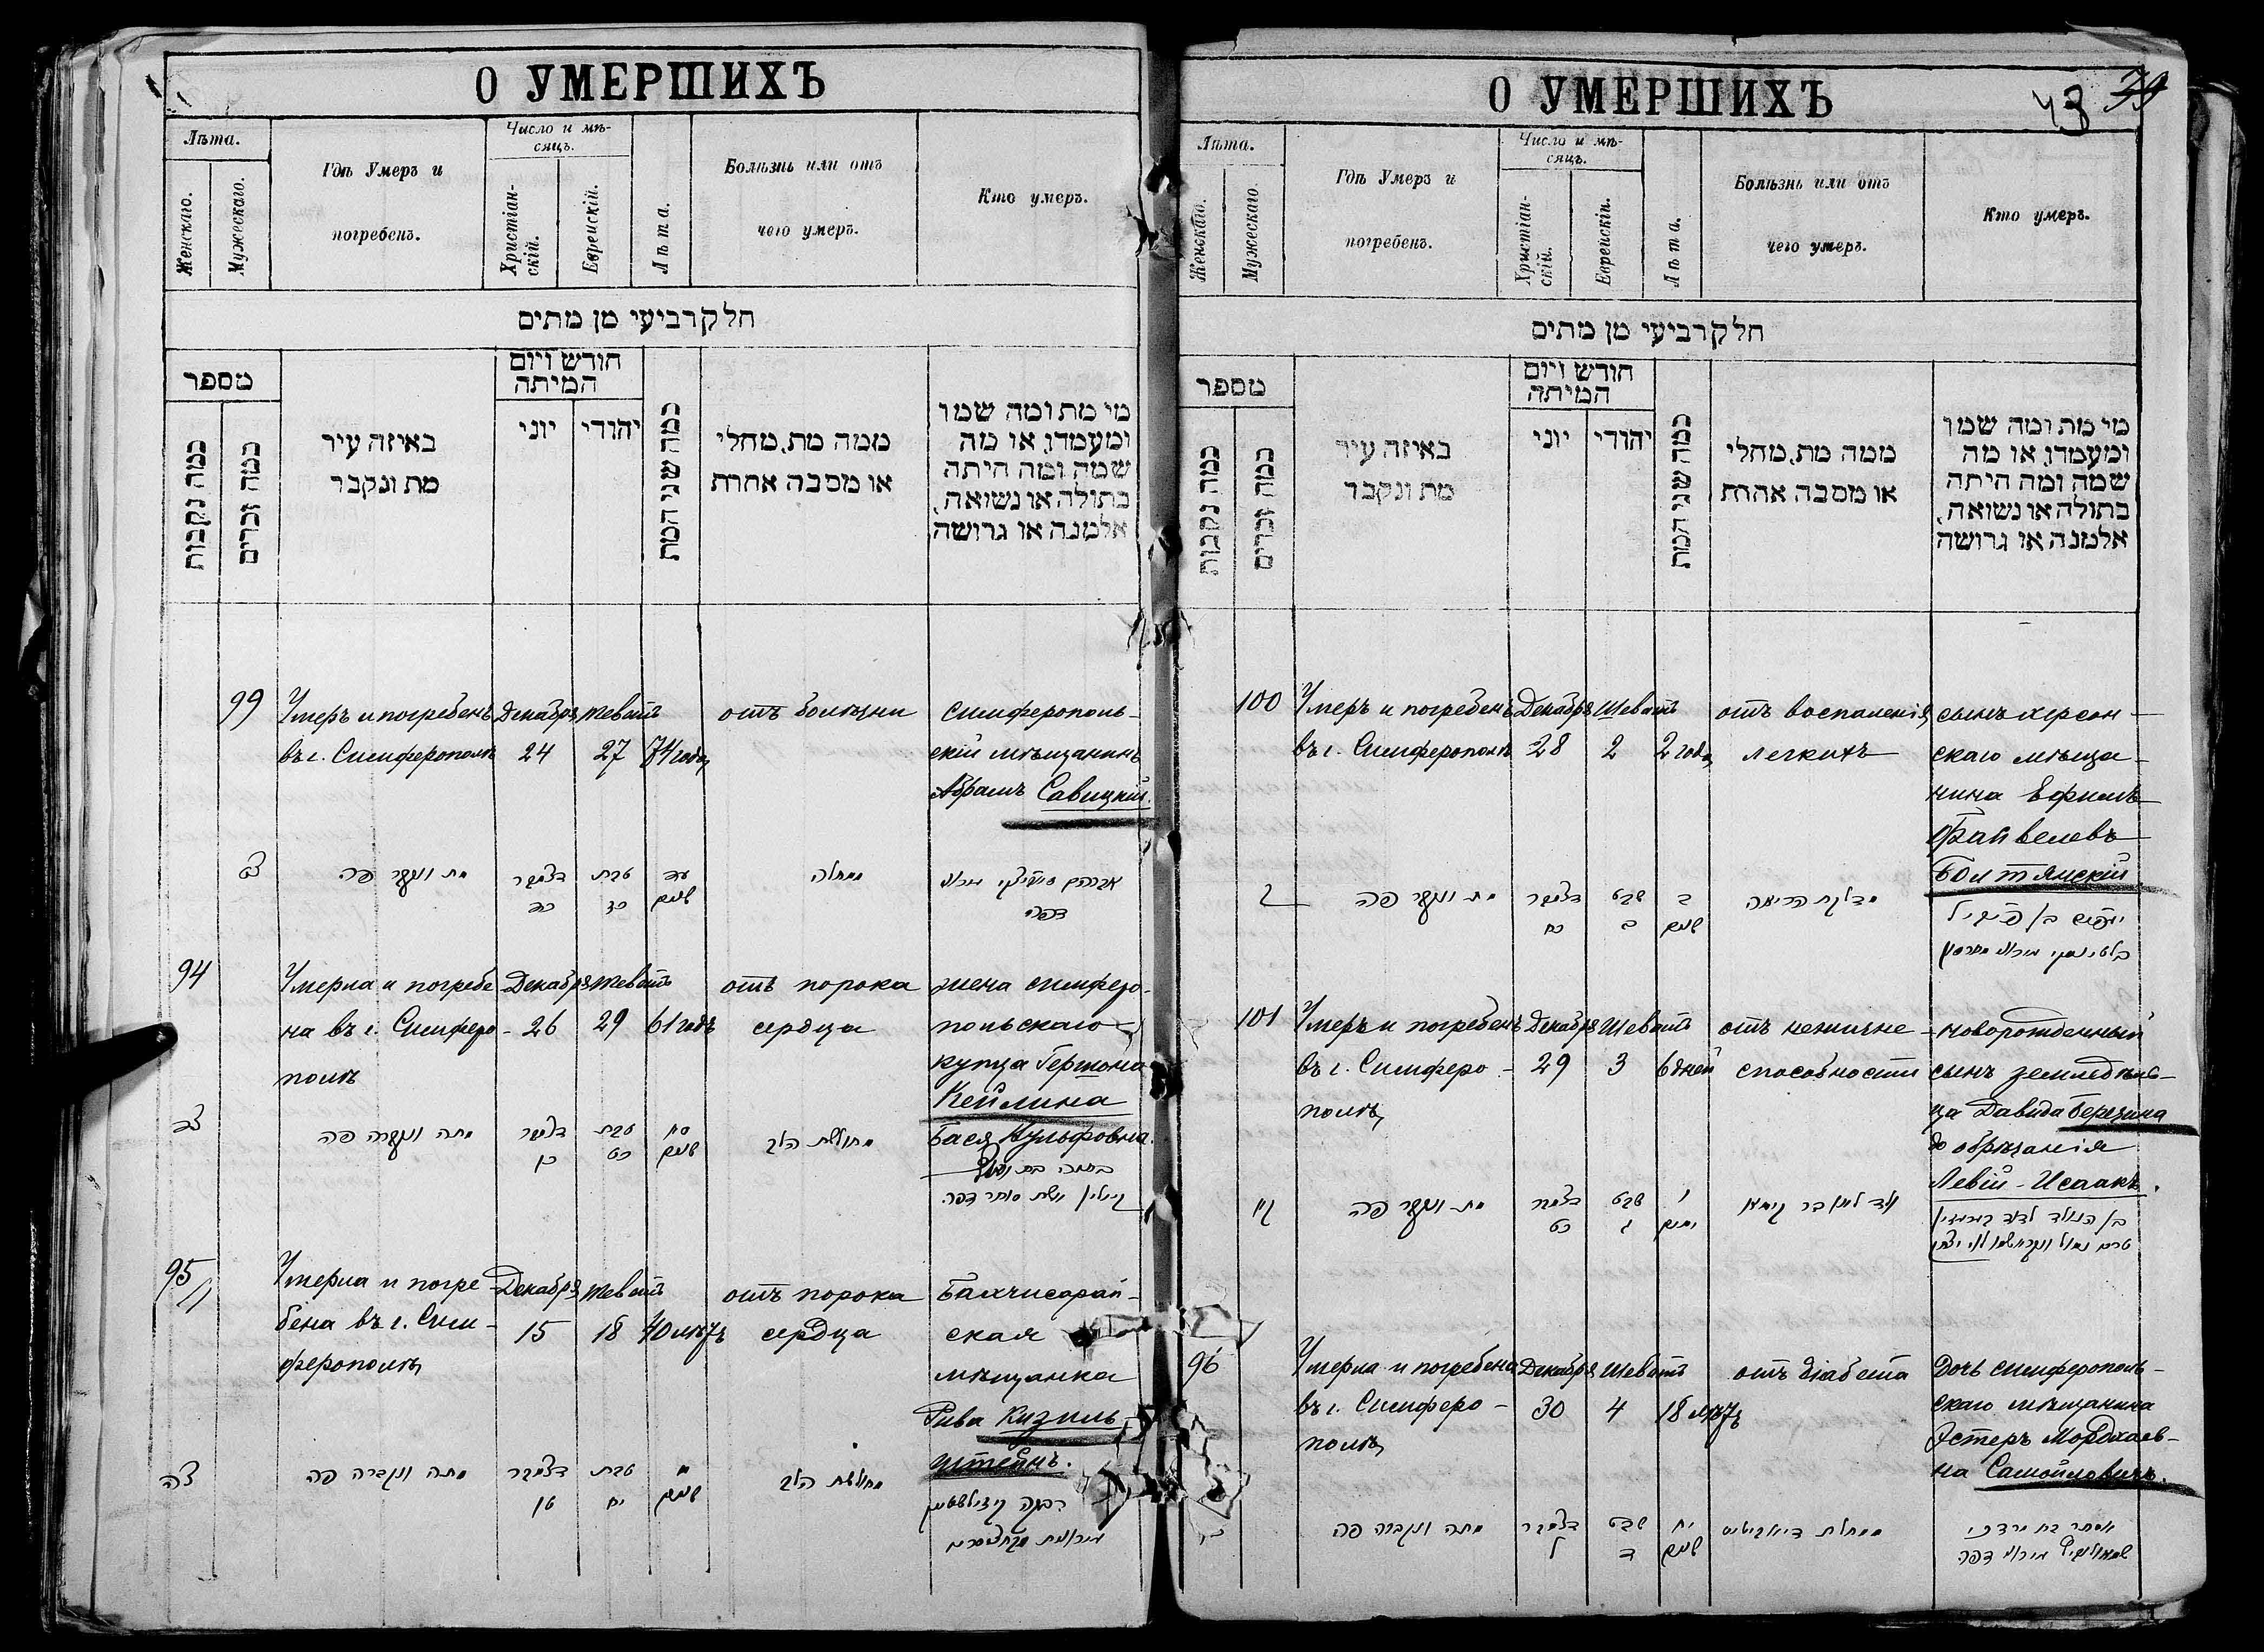 О УМЕРШИХЪ
Лѣта.
Женскаго.
Мужескаго.
Гдѣ Умеръ и
погребенъ.
Число и мѣ-
сяцъ.
Христіан-
скій.
Еврейскій.
Лѣта.
Болѣзнь или отъ
чего умеръ.
Кто умеръ.
חלק רביעי מן מתים
מספר
כמה נקבות
כמה זכרים
באיזה עיר
מת ונקבר
חודש ויום
המיתה
יוני
יהודי
כמה שני המת
ממה מת, מחלי
או מסבה אחרת
מי מת ומה שמו
ומעמדו, או מה
שמה ומה היתה
בתולה או נשואה,
אלמנה או גרושה
99
Умеръ и погребенъ
въ г. Симферополѣ
Декабря
24
Теватъ
27
74 года
отъ болѣзни
симферополь-
скій мѣщанинъ
Абрамъ Савицкій.
מת ונקבר פה
דצמבר
כד
טבת
כז
עד
שנים
מחלה
אברהם
דפה
94
Умерла и погребе
на въ г. Симферо-
полѣ
Декабря
26
Теватъ
29
61 годъ
отъ порока
сердца
жена симферо-
польскаго
купца Гершона
Кейлина
Бася Вульфовна.
צד
מתה ונקברה פה
דצמבר
כו
טבת
כט
סא
שנים
מחלת הלב
קיילין אשת סוחר דפה.
95
Умерла и погре-
бена въ г. Сим-
ферополѣ
Декабря
15
Теватъ
18
40 лѣтъ
отъ порока
сердца
Бахчисарай-
ская
мѣщанка
Рива Кизиль-
штейнъ.
צה
מתה ונקברה פה
דצמבר
טו
טבת
יח
מ
שנים
מחלת הלב
רבקה קיזילשטיין
О УМЕРШИХЪ
43 39
Лѣта.
Женскаго.
Мужескаго.
Гдѣ Умеръ и
погребенъ.
Число и мѣ-
сяцъ.
Христіан-
скій.
Еврейскій.
Лѣта.
Болѣзнь или отъ
чего умеръ.
Кто умеръ.
חלק רביעי מן מתים
מספר
כמה נקבות
כמה זכרים
באיזה עיר
מת ונקבר
חודש ויום
המיתה
יוני
יהודי
כמה שני המת
ממה מת, מחלי
או מסבה אחרת
מי מת ומה שמו
ומעמדו, או מה
שמה ומה היתה
בתולה או נשואה,
אלמנה או גרושה
100
Умеръ и погребенъ
въ г. Симферополѣ
Декабря
28
Шеватъ
2
2 года
отъ воспаленія
легкихъ
сынъ херсон-
скаго мѣща-
нина Ефимъ
Файвелевъ
Болтянскій.
ק
מת ונקבר פה
דצמבר
כח
שבט
ב
ב
שנים
מדלקת הריאה
101
Умеръ и погребенъ
въ г. Симферо-
полѣ
Декабря
29
Шеватъ
3
6 дней
отъ нежизне-
способности
новорожденный
сынъ земледѣль-
ца Давида Березина
до обрѣзанія
Левій-Исаакъ.
קא
מת ונקבר פה
דצמבר
כט
שבט
ג
ו
ימים
ילד לאו בר קיימא
96
Умерла и погребена
въ г. Симферо-
полѣ
Декабря
30
Шеватъ
4
18 лѣтъ
отъ діабета
Дочь симферополь-
скаго мѣщанина
Эстеръ Мордхаев-
на Самойловичъ.
מתה ונקברה פה
דצמבר
ל
שבט
ד
יח
שנים
ממחלת
אסתר בת מרדכי